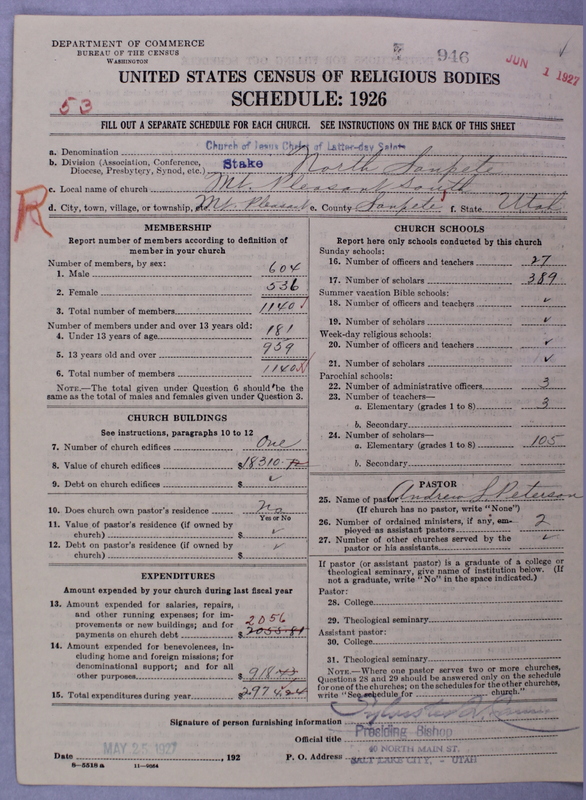 DEPARTMENT OF COMMERCE
BUREAU OF THE CENSUS
WASHINGTON
946
JUN 1 1927
UNITED STATES CENSUS OF RELIGIOUS BODIES
53
SCHEDULE: 1926
FILL OUT A SEPARATE SCHEDULE FOR EACH CHURCH. SEE INSTRUCTIONS ON THE BACK OF THIS SHEET
a. Denomination Church of Jesus Christ of Latter-day Saints
b. Division (Association, Conference, Diocese, Presbytery, Synod, etc.) Stake North Sanpete
c. Local name of church Mt. Pleasant South
R
d. City, town, village, or township, etc. Mt. Pleasant e. County Sanpete f. State Utah
MEMBERSHIP
Report number of members according to definition of
member in your church
Number of members, by sex:
1. Male 604
2. Female 536
3. Total number of members 1140
Number of members under and over 13 years old:
4. Under 13 years of age 181
5. 13 years old and over 959
6. Total number of members 1140
NOTE.—The total given under Question 6 should be the
same as the total of males and females given under Question 3.
CHURCH BUILDINGS
See instructions, paragraphs 10 to 12
7. Number of church edifices One
8. Value of church edifices $18310
9. Debt on church edifices $ ✓
10. Does church own pastor's residence? No
Yes or No
11. Value of pastor's residence (if owned by
church) $ ✓
12. Debt on pastor's residence (if owned by
church) $ ✓
EXPENDITURES
Amount expended by your church during last fiscal year
13. Amount expended for salaries, repairs,
and other running expenses; for im-
provements or new buildings; and for 2056
payments on church debt $2055.81
14. Amount expended for benevolences, in-
cluding home and foreign missions; for
denominational support; and for all
other purposes $918.43
15. Total expenditures during year $2974.24
CHURCH SCHOOLS
Report here only schools conducted by this church
Sunday schools:
16. Number of officers and teachers 27
17. Number of scholars 389
Summer vacation Bible schools:
18. Number of officers and teachers ✓
19. Number of scholars ✓
Week-day religious schools:
20. Number of officers and teachers ✓
21. Number of scholars ✓
Parochial schools:
22. Number of administrative officers 3
23. Number of teachers—
a. Elementary (grades 1 to 8) 3
b. Secondary
24. Number of scholars—
a. Elementary (grades 1 to 8) 105
b. Secondary
PASTOR
25. Name of pastor Andrew L Peterson
(If church has no pastor, write "None")
26. Number of ordained ministers, if any, em-
ployed as assistant pastors 2
27. Number of other churches served by the
pastor or his assistants ✓
If pastor (or assistant pastor) is a graduate of a college or
theological seminary, give name of institution below. (If
not a graduate, write "No" in the space indicated.)
Pastor:
28. College
29. Theological seminary
Assistant pastor:
30. College
31. Theological seminary
NOTE.—Where one pastor serves two or more churches,
Questions 28 and 29 should be answered only on the schedule
for one of the churches; on the schedules for the other churches,
write "See schedule for church."
Signature of person furnishing information
Official title Presiding Bishop
40 NORTH MAIN ST.
Date MAY 25 1927, 192 P. O. Address SALT LAKE CITY, - UTAH
8—5518a 11—9064